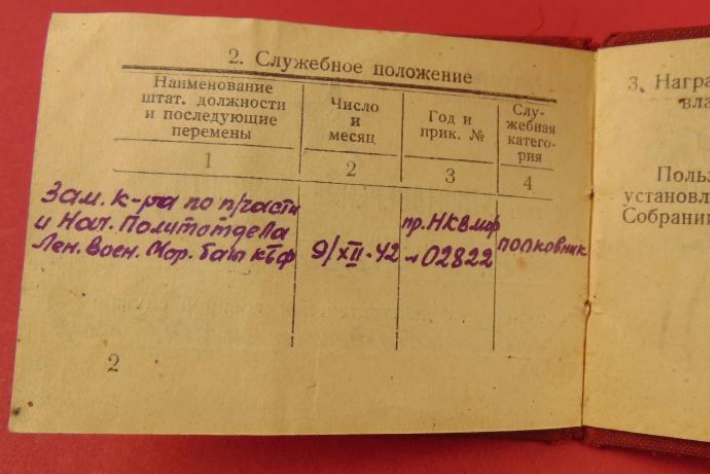 2. Служебное положение
Наименование штат. должности и последующие перемены
Число и месяц
Год и прик. №
Слу-жебная катего-рия
1 2 3 4
Зам. к-ра по п/части
и Нач. Политотдела
Лен. Воен. Мор. базы КБФ
9/XII-42
пр. НКВМФ
-02822
полковник
2
3. Награ
вла
Польз
установл
Собрани